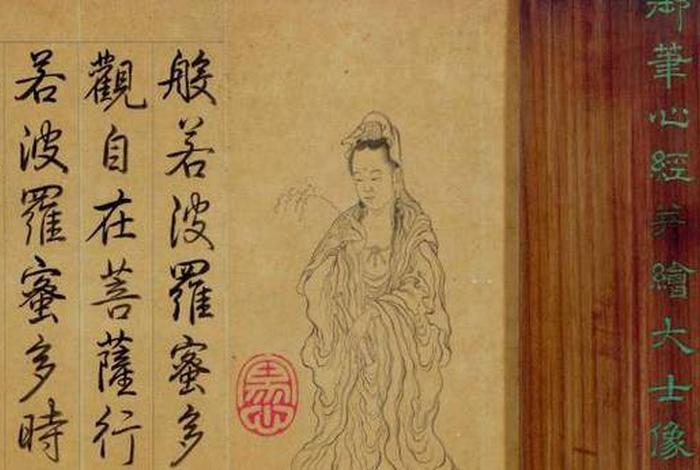 御筆心經并繪大士像
般若波羅蜜多
觀自在菩薩行
若波羅蜜多時